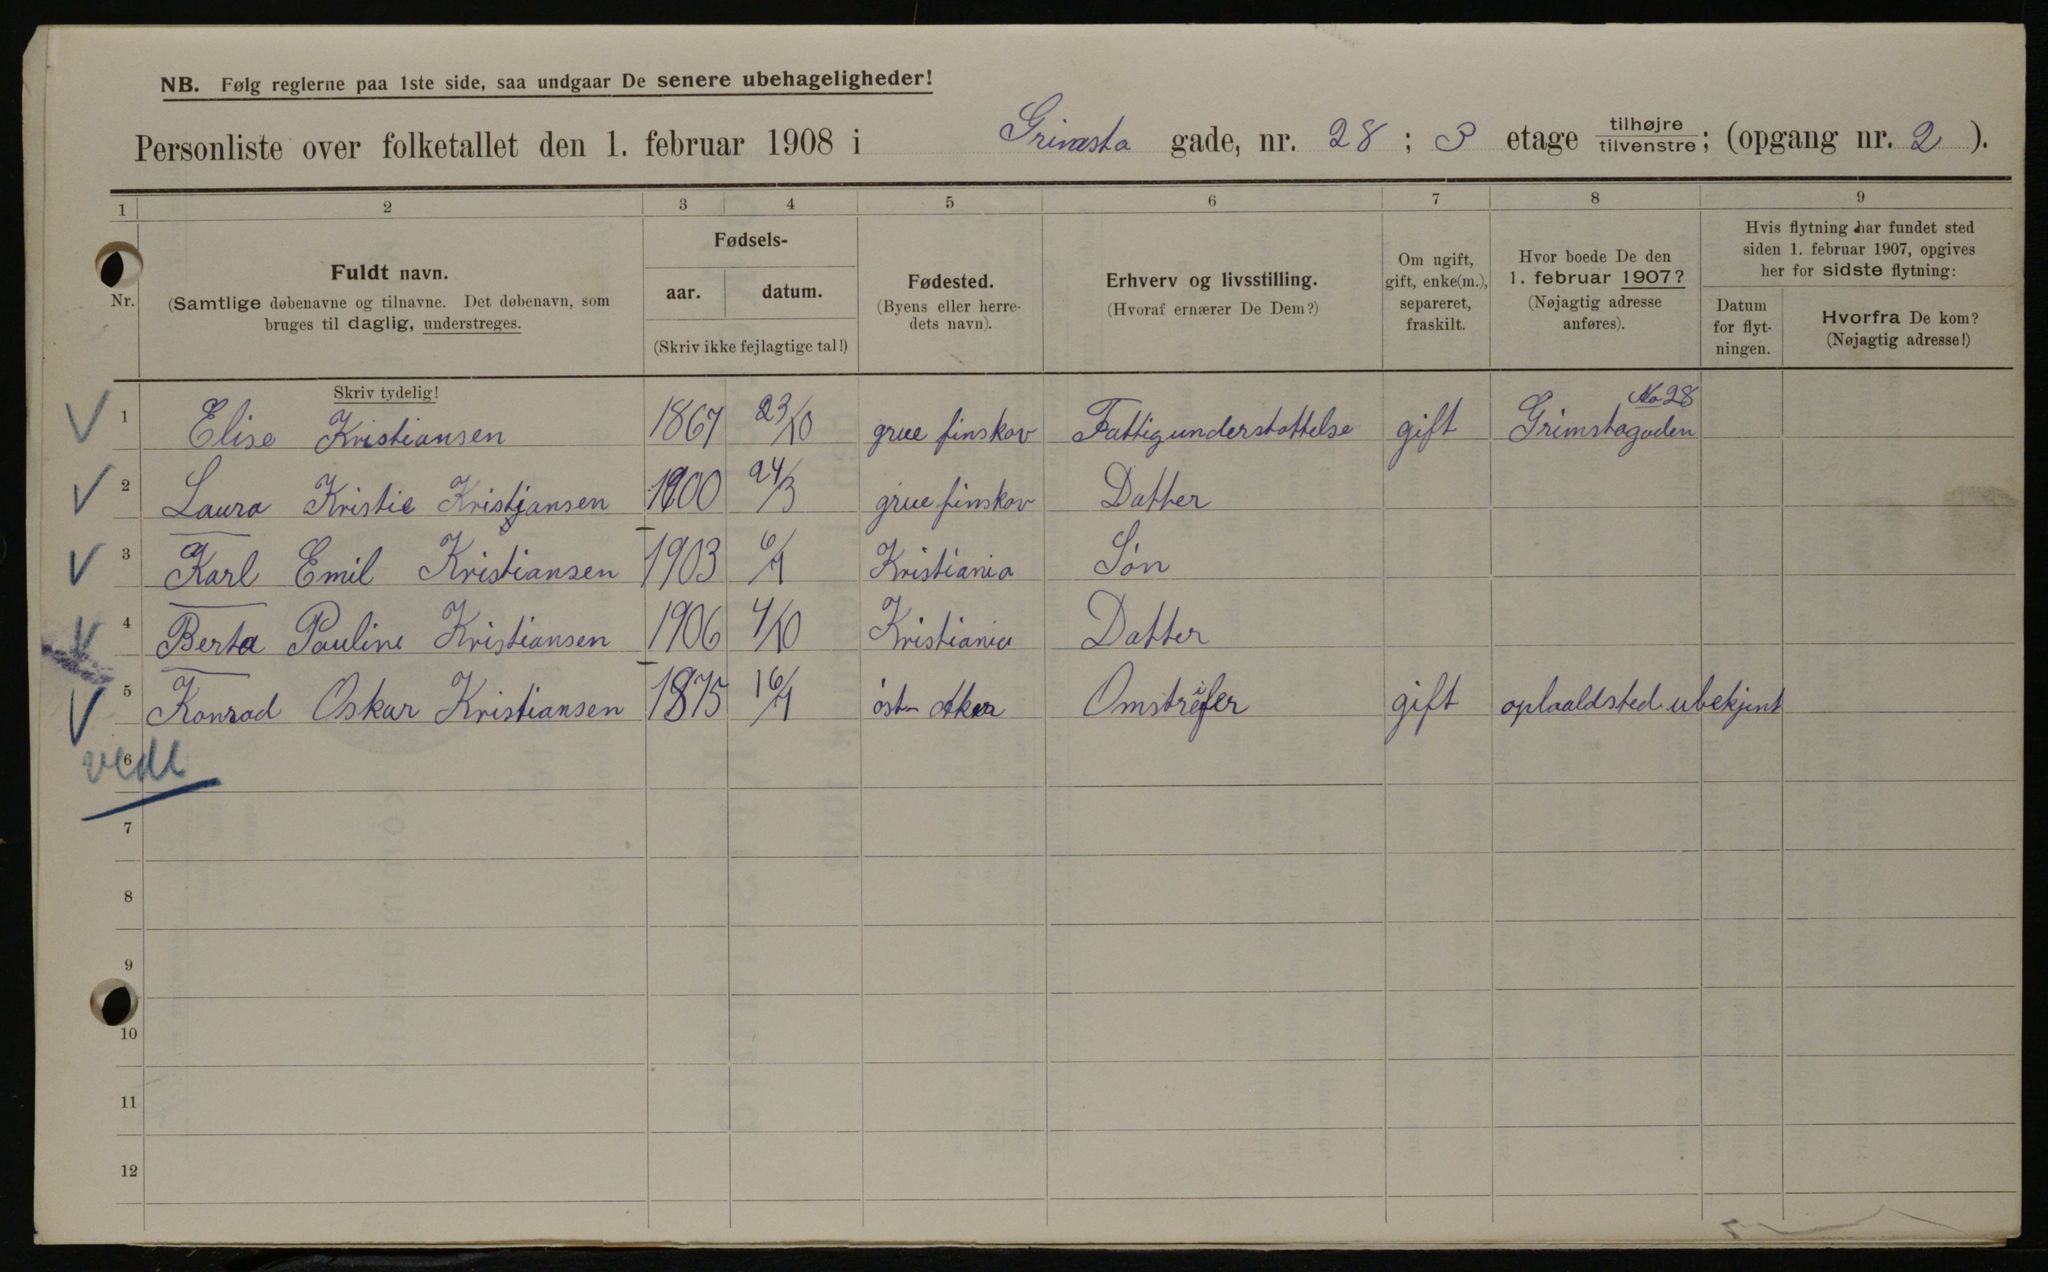 NB. Følg reglerne paa 1ste side, saa undgaar De senere ubehageligheder!
Personliste over folketallet den 1. februar 1908 i Grimsta gade, nr. 28; 3 etage tilhøjre tilvenstre; (opgang nr. 2).
1 2 3 4 5 6 7 8 9
Nr.
Fuldt navn.
(Samtlige døbenavne og tilnavne. Det døbenavn, som
bruges til daglig, understreges.
Skriv tydelig!
Fødsels-
aar. datum.
(Skriv ikke fejlagtige tal!)
Fødested.
(Byens eller herre-
dets navn).
Erhverv og livsstilling.
(Hvoraf ernærer De Dem?)
Om ugift,
gift, enke(m.),
separeret,
fraskilt.
Hvor boede De den
1. februar 1907?
(Nøjagtig adresse
anføres).
Hvis flytning har fundet sted
siden 1. februar 1907, opgives
her for sidste flytning:
Datum
for flyt-
ningen.
Hvorfra De kom?
(Nøjagtig adresse!)
No 28
1 Elise Kristiansen 1867 23/10 grue finskov Fattigunderstøttelse gift Grimstagaden
2 Laura Kristie Kristjansen 1900 24/3 grue finskov Datter
3 Karl Emil Kristiansen 1903 6/1 Kristiania Søn
4 Berta Pauline Kristiansen 1906 4/10 Kristiania Datter
5 Konrad Oskar Kristiansen 1875 16/1 østn Aker Omstreifer gift ophaldsted ubekjent
6
7
8
9
10
11
12